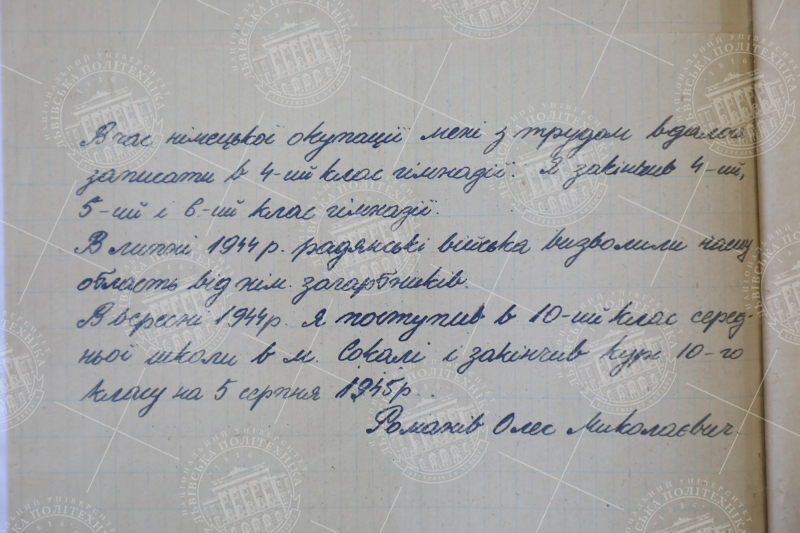 В час німецької окупації мені з трудом вдалося
записати в 4-ий клас гімназії. Я закінчив 4-ий,
5-ий і 6-ий клас гімназії.
В липні 1944 р. радянські війська визволили нашу
область від нім. загарбників.
В вересні 1944р. я поступив в 10-ий клас серед-
ньої школи в м. Сокалі і закінчив курс 10-го
класу на 5 серпня 1945р.
Романів Олег Миколаєвич
НАЦІОНАЛЬНИЙ УНІВЕРСИТЕТ
ЛЬВІВСЬКА ПОЛІТЕХНІКА
1816